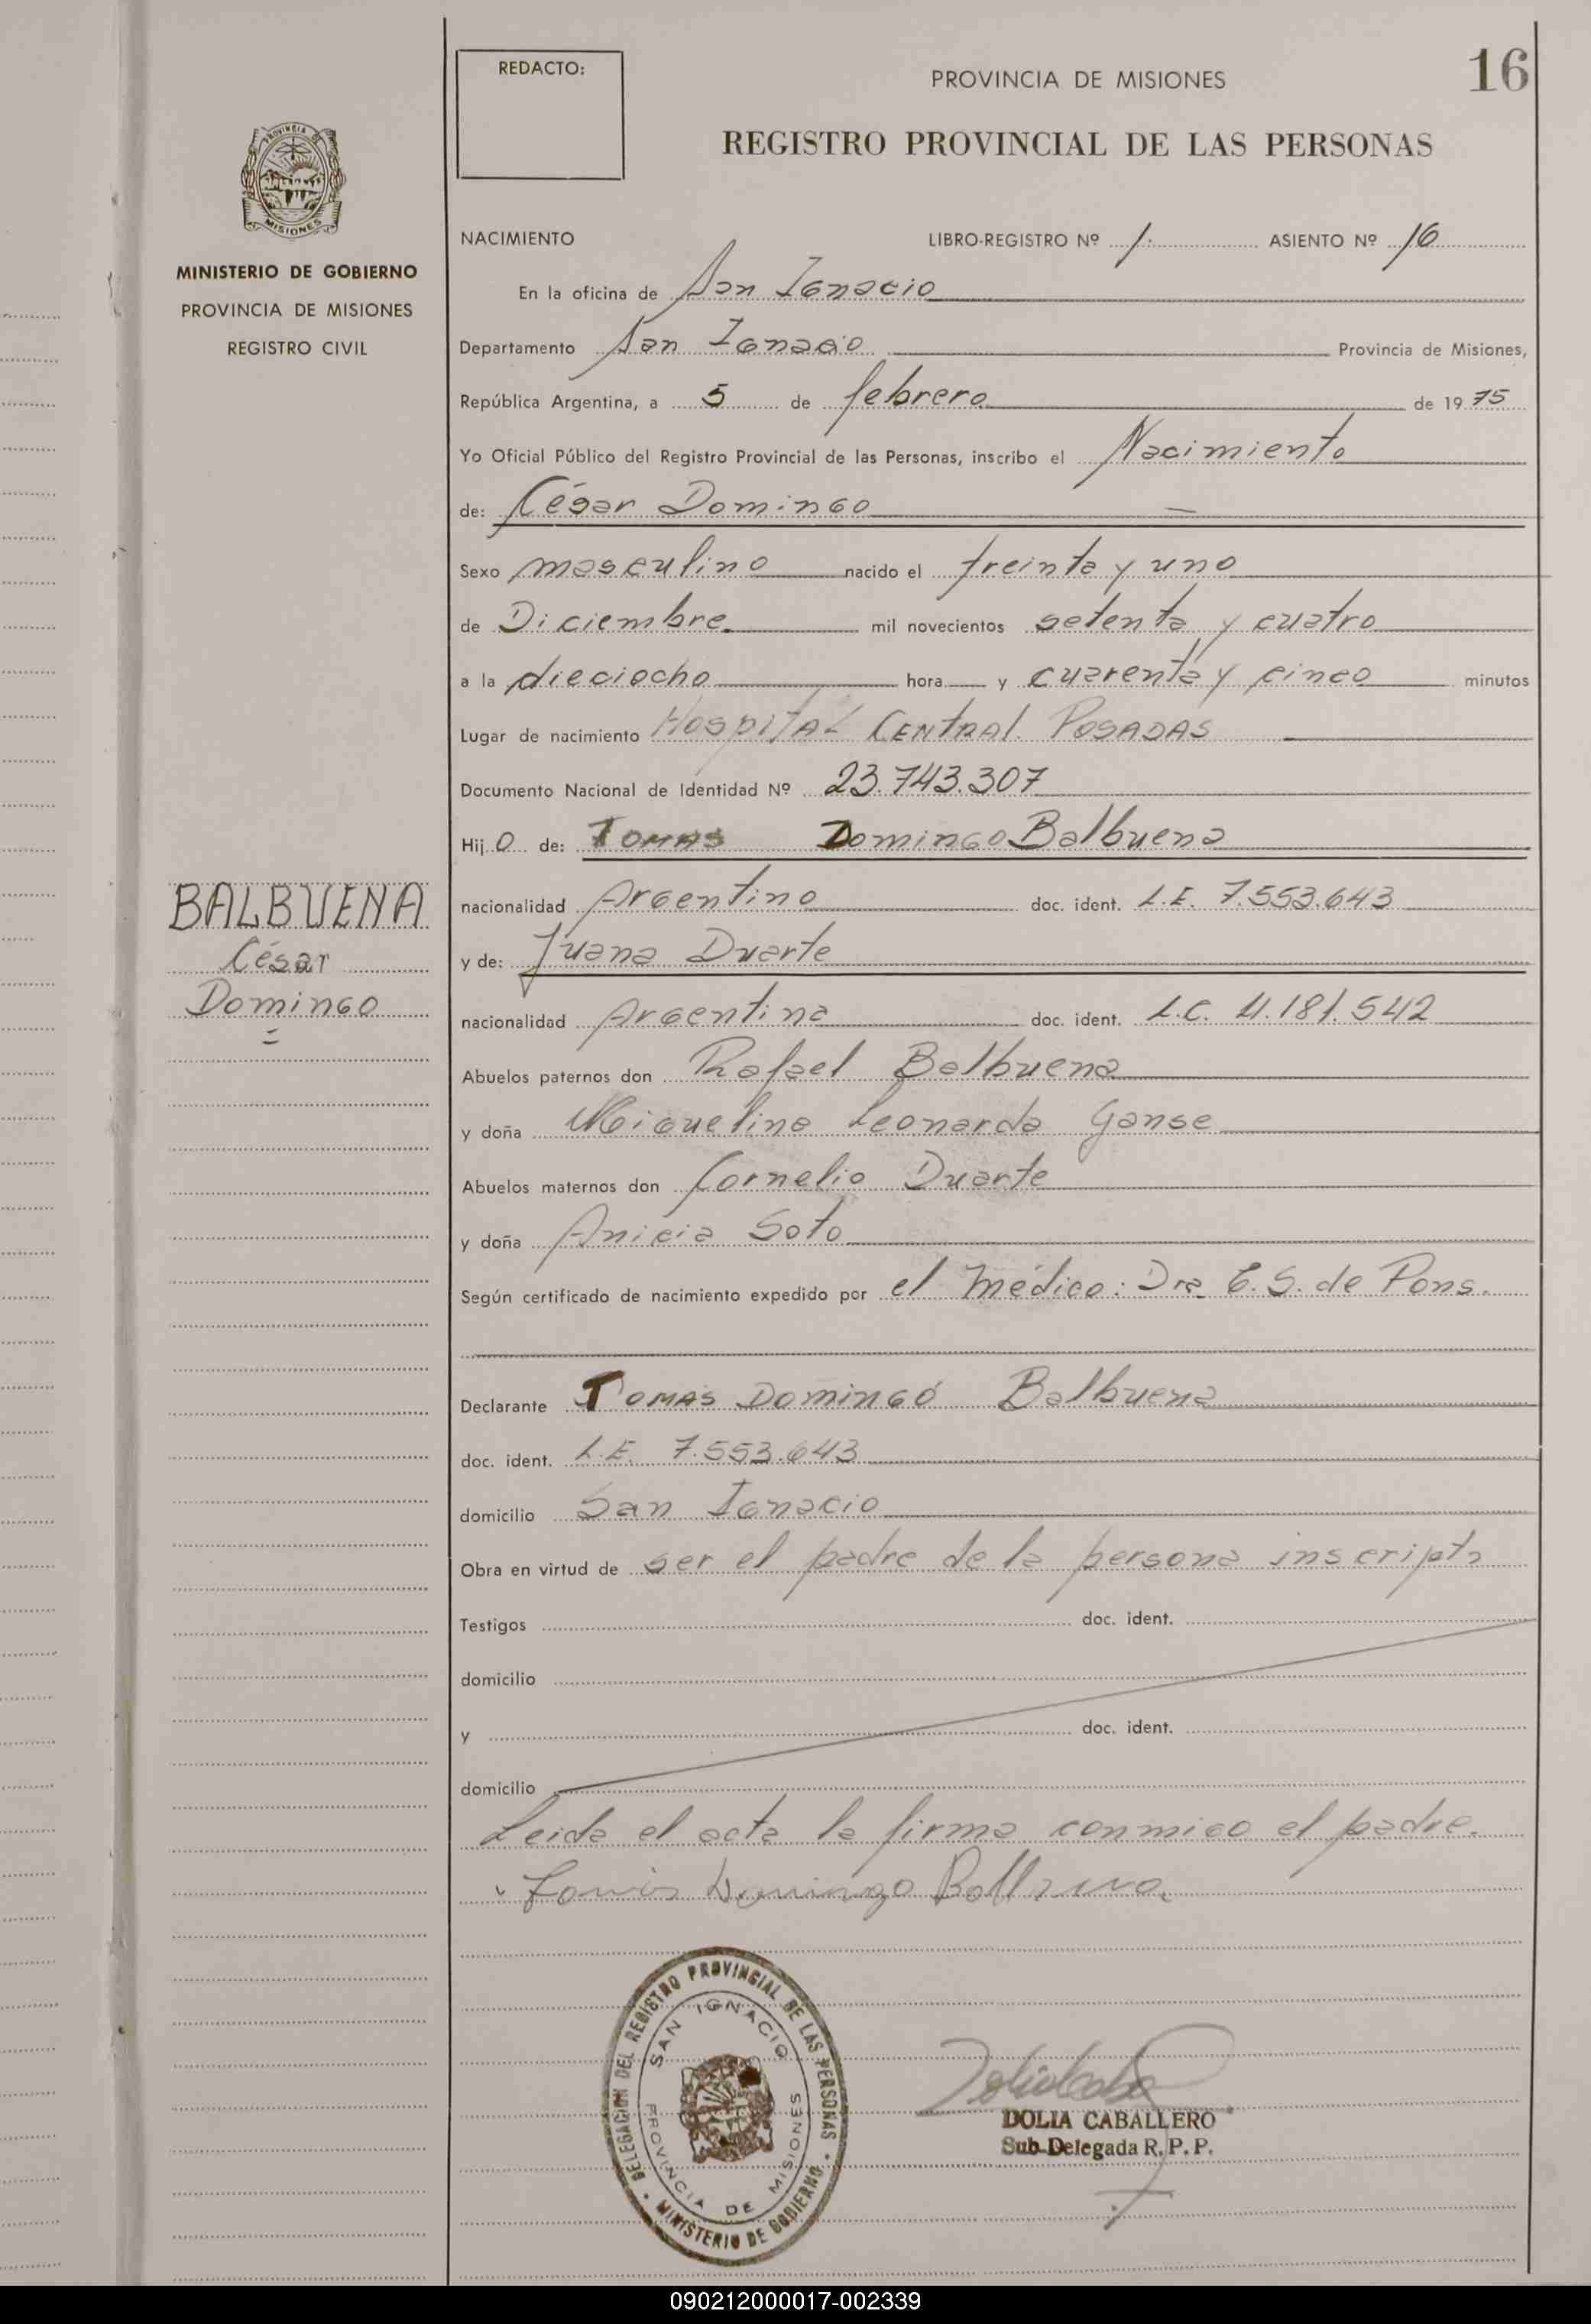 REDACTO:
PROVINCIA DE MISIONES
16
REGISTRO PROVINCIAL DE LAS PERSONAS
PROVINCIA DE
MISIONES
MINISTERIO DE GOBIERNO
PROVINCIA DE MISIONES
REGISTRO CIVIL
NACIMIENTO LIBRO-REGISTRO Nº 1. ASIENTO Nº 16
En la oficina de San Ignacio
Departamento San Ignacio Provincia de Misiones,
República Argentina, a 5 de febrero de 1975
Yo Oficial Público del Registro Provincial de las Personas, inscribo el Nacimiento
de: César Domingo
Sexo masculino nacido el treinta y uno
de Diciembre mil novecientos setenta y cuatro
a la dieciocho hora y cuarenta y cinco minutos
Lugar de nacimiento Hospital Central Posadas
Documento Nacional de Identidad Nº 23.743.307
Hijo de: Tomas Domingo Balbuena
nacionalidad Argentino doc. ident. L.E. 7.553.643
y de: Juana Duarte
nacionalidad Argentina doc. ident. L.C. 4.181.542
BALBUENA
César
Domingo
Abuelos paternos don Rafael Balbuena
y doña Miguelina Leonarda Ganse
Abuelos maternos don Cornelio Duarte
y doña Anicia Soto
Según certificado de nacimiento expedido por el Médico: Dra. E. S. de Pons.
Declarante Tomás Domingo Balbuena
doc. ident. L.E. 7.553.643
domicilio San Ignacio
Obra en virtud de ser el padre de la persona inscripta
Testigos doc. ident.
domicilio
y doc. ident.
domicilio
Leida el acta la firma conmigo el padre.
Tomás Domingo Balbuena
DELEGACION DEL REGISTRO PROVINCIAL DE LAS PERSONAS
SAN IGNACIO
PROVINCIA DE MISIONES
MINISTERIO DE GOBIERNO
DOLIA CABALLERO
Sub-Delegada R. P. P.
090212000017-002339